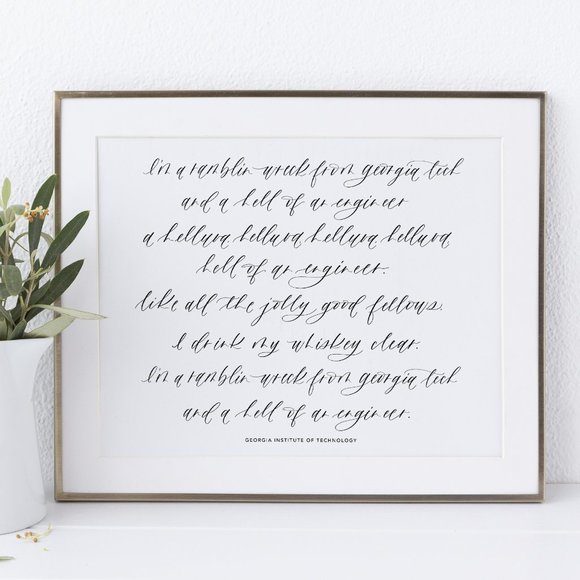 I'm a ramblin wreck from georgia tech
and a hell of an engineer
a helluva, helluva, helluva, helluva,
hell of an engineer.
like all the jolly good fellows.
I drink my whiskey clear.
I'm a ramblin wreck from georgia tech
and a hell of an engineer.
GEORGIA INSTITUTE OF TECHNOLOGY